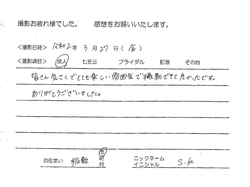 撮影お疲れ様でした。 感想をお願いいたします。
<撮影日時> 令和2年 3月27日(金)
<撮影項目> 成人 七五三 ブライダル 記念 その他
皆さん優しくてとても楽しい雰囲気で撮影できて良かったです。
ありがとうございました。
お住まい 稲敷 市 町 村 ニックネーム イニシャル S.K